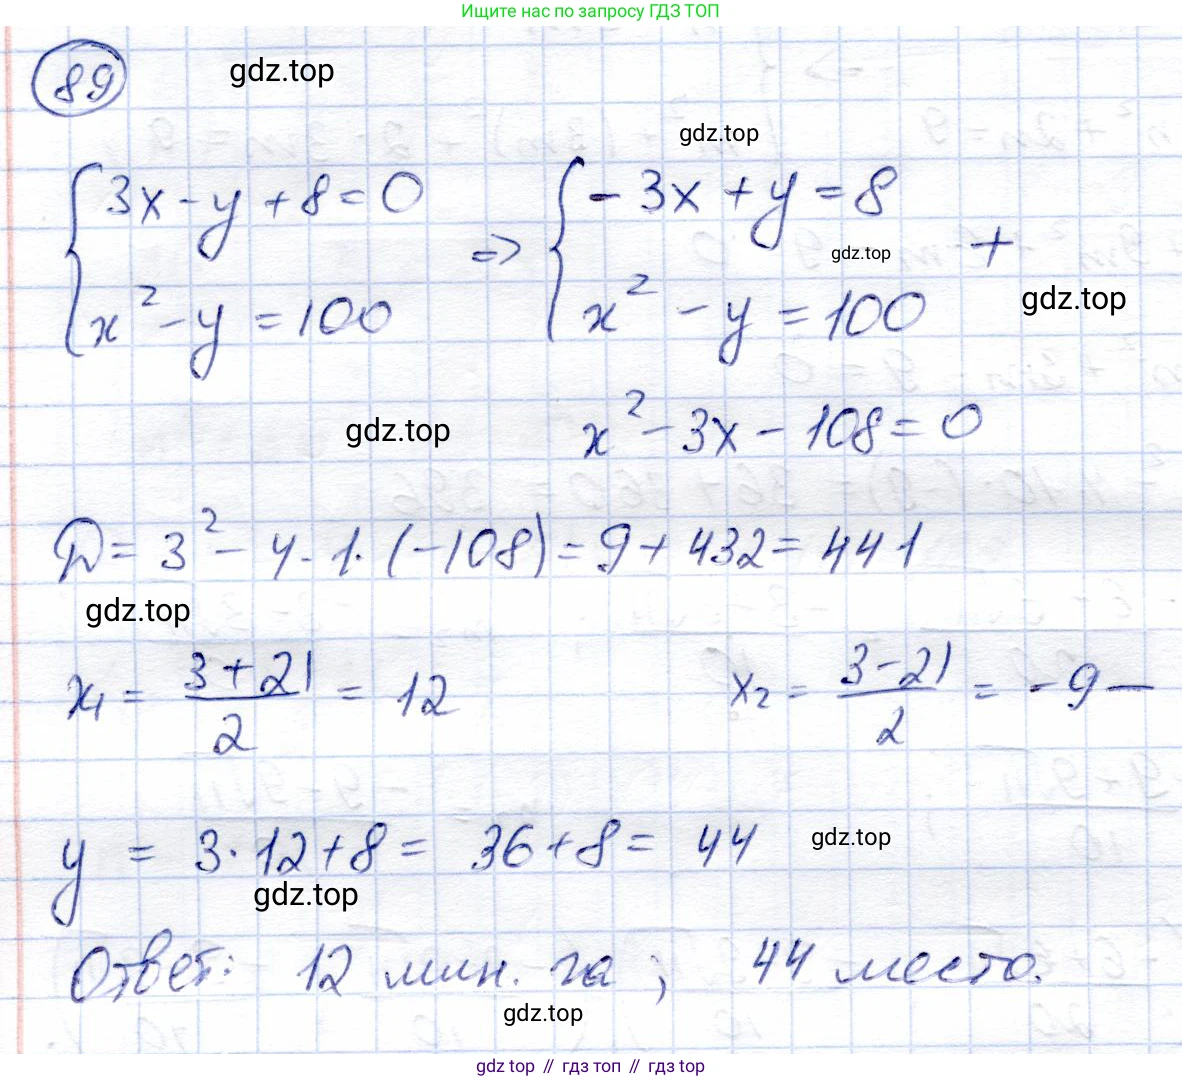 Ищите нас по запросу ГДЗ ТОП
89 gdz.top
gdz.top
{3x - y + 8 = 0 => {-3x + y = 8
gdz.top +
x² - y = 100 x² - y = 100 gdz.top
gdz.top x² - 3x - 108 = 0
D = 3² - 4 · 1 · (-108) = 9 + 432 = 441
gdz.top
x₁ = (3 + 21)/2 = 12 x₂ = (3 - 21)/2 = -9 —
y = 3 · 12 + 8 = 36 + 8 = 44 gdz.top
gdz.top
Ответ: 12 млн. га ; 44 место.
gdz.top
gdz top // гдз топ // гдз top